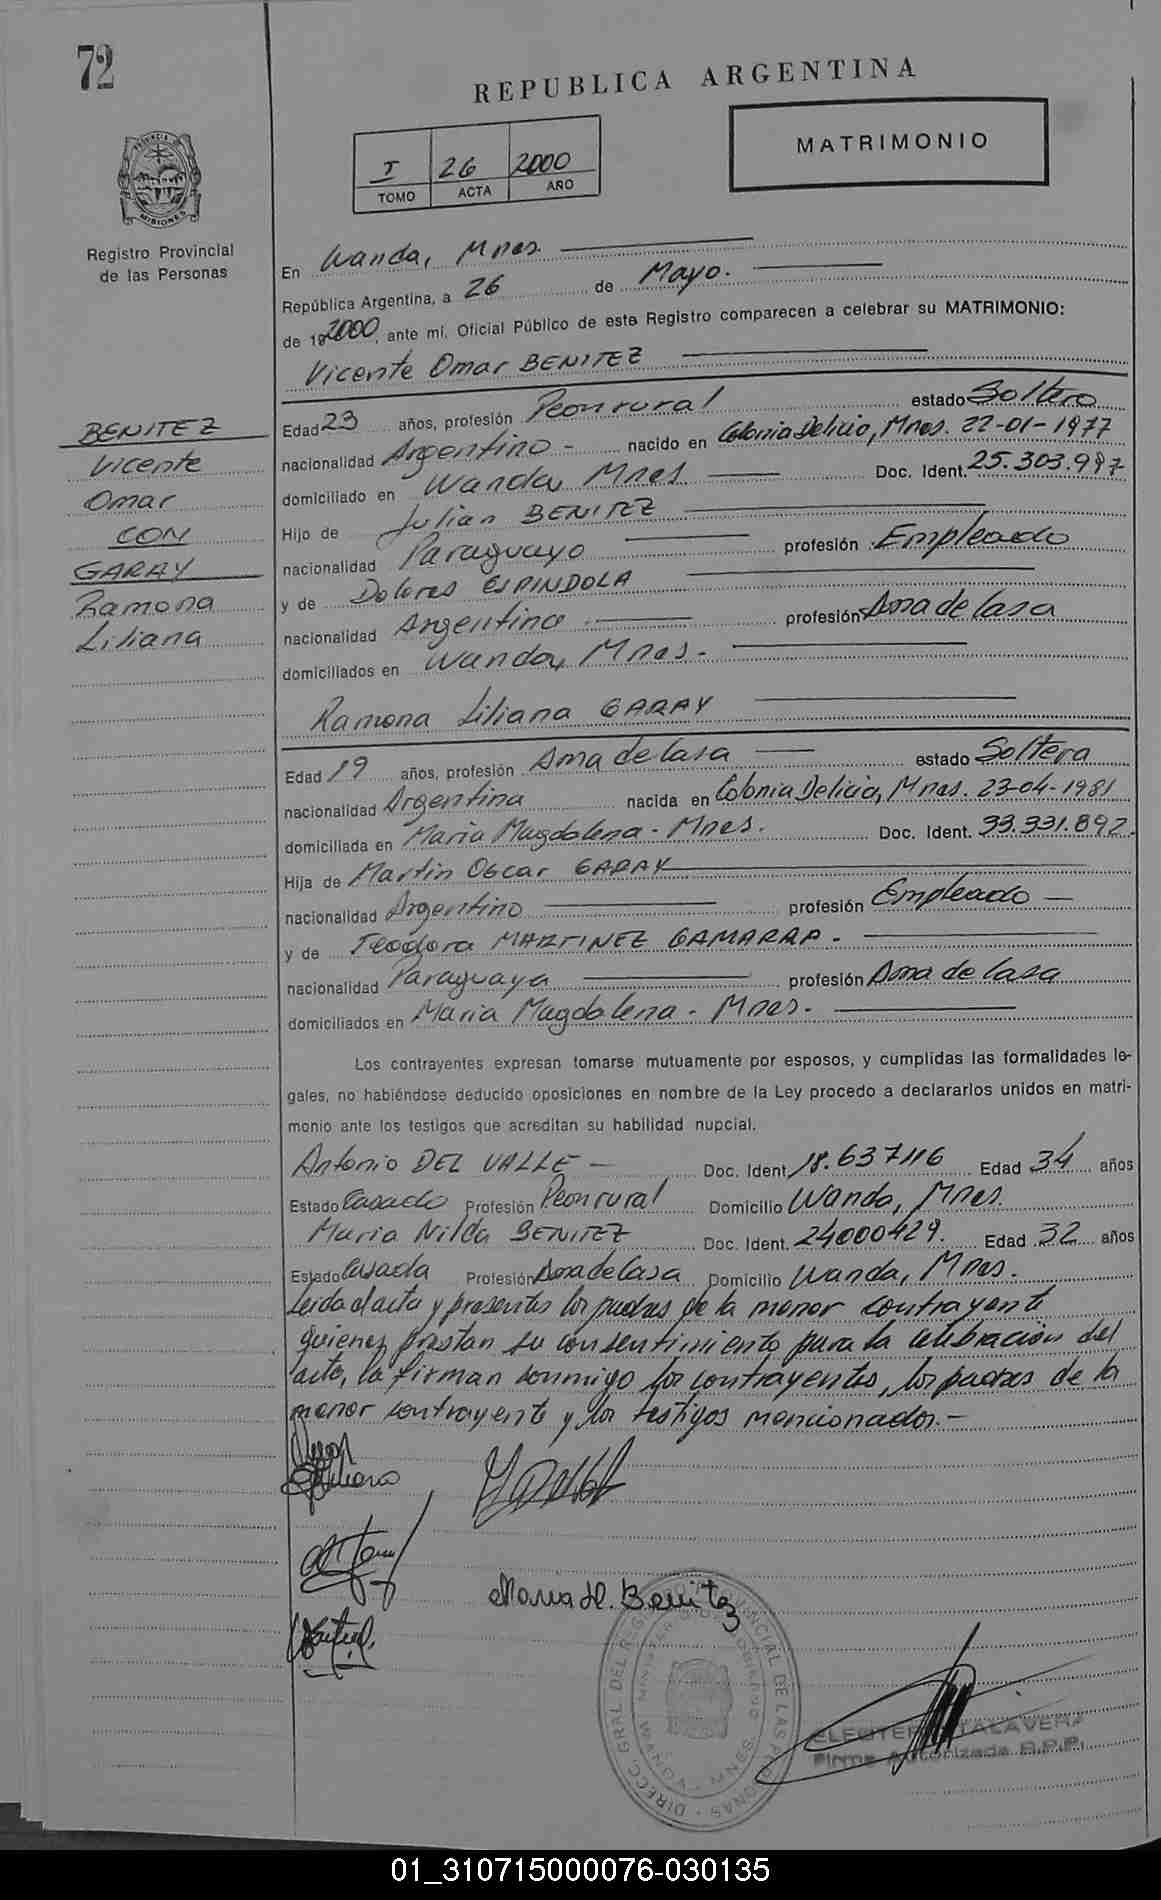 72
REPUBLICA ARGENTINA
MATRIMONIO
I 26 2000
TOMO ACTA AÑO
PROVINCIA DE MISIONES
Registro Provincial
de las Personas
En Wanda, Mnes.
República Argentina, a 26 de Mayo.
de 192000, ante mí, Oficial Público de este Registro comparecen a celebrar su MATRIMONIO:
Vicente Omar BENITEZ
BENITEZ
Vicente
Omar
CON
GARAY
Ramona
Liliana
Edad 23 años, profesión Peon rural estado Soltero
nacionalidad Argentino - nacido en Colonia Delicia, Mnes. 22-01-1977
domiciliado en Wanda, Mnes. Doc. Ident. 25.303.997
Hijo de Julian BENITEZ
nacionalidad Paraguayo profesión Empleado
y de Dolores ESPINDOLA
nacionalidad Argentina profesión Ama de Casa
domiciliados en Wanda, Mnes.-
Ramona Liliana GARAY
Edad 19 años, profesión Ama de Casa estado Soltera
nacionalidad Argentina nacida en Colonia Delicia, Mnes. 23-04-1981
domiciliada en Maria Magdalena - Mnes. Doc. Ident. 33.331.892.
Hija de Martin Oscar GARAY
nacionalidad Argentino profesión Empleado
y de Teodora MARTINEZ GAMARRA.
nacionalidad Paraguaya profesión Ama de Casa
domiciliados en Maria Magdalena - Mnes.
Los contrayentes expresan tomarse mutuamente por esposos, y cumplidas las formalidades le-
gales, no habiéndose deducido oposiciones en nombre de la Ley procedo a declararlos unidos en matri-
monio ante los testigos que acreditan su habilidad nupcial.
Antonio DEL VALLE - Doc. Ident. 18.637116 Edad 34 años
Estado Casado Profesión Peon rural Domicilio Wanda, Mnes.
Maria Nilda BENITEZ Doc. Ident. 24000429. Edad 32 años
Estado Casada Profesión Ama de Casa Domicilio Wanda, Mnes.
Leida el acta y presentes los padres de la menor contrayente
quienes prestan su consentimiento para la celebración del
acto, la firman conmigo los contrayentes, los padres de la
menor contrayente y los testigos mencionados.-
Liliana
Maria N. Benitez
DIRECC. GRAL. DEL REGISTRO PROVINCIAL DE LAS PERSONAS
MINISTERIO DE GOBIERNO
WANDA - MNES.
ELEUTERIO TALAVERA
Firma Autorizada R.P.P.
01_310715000076-030135